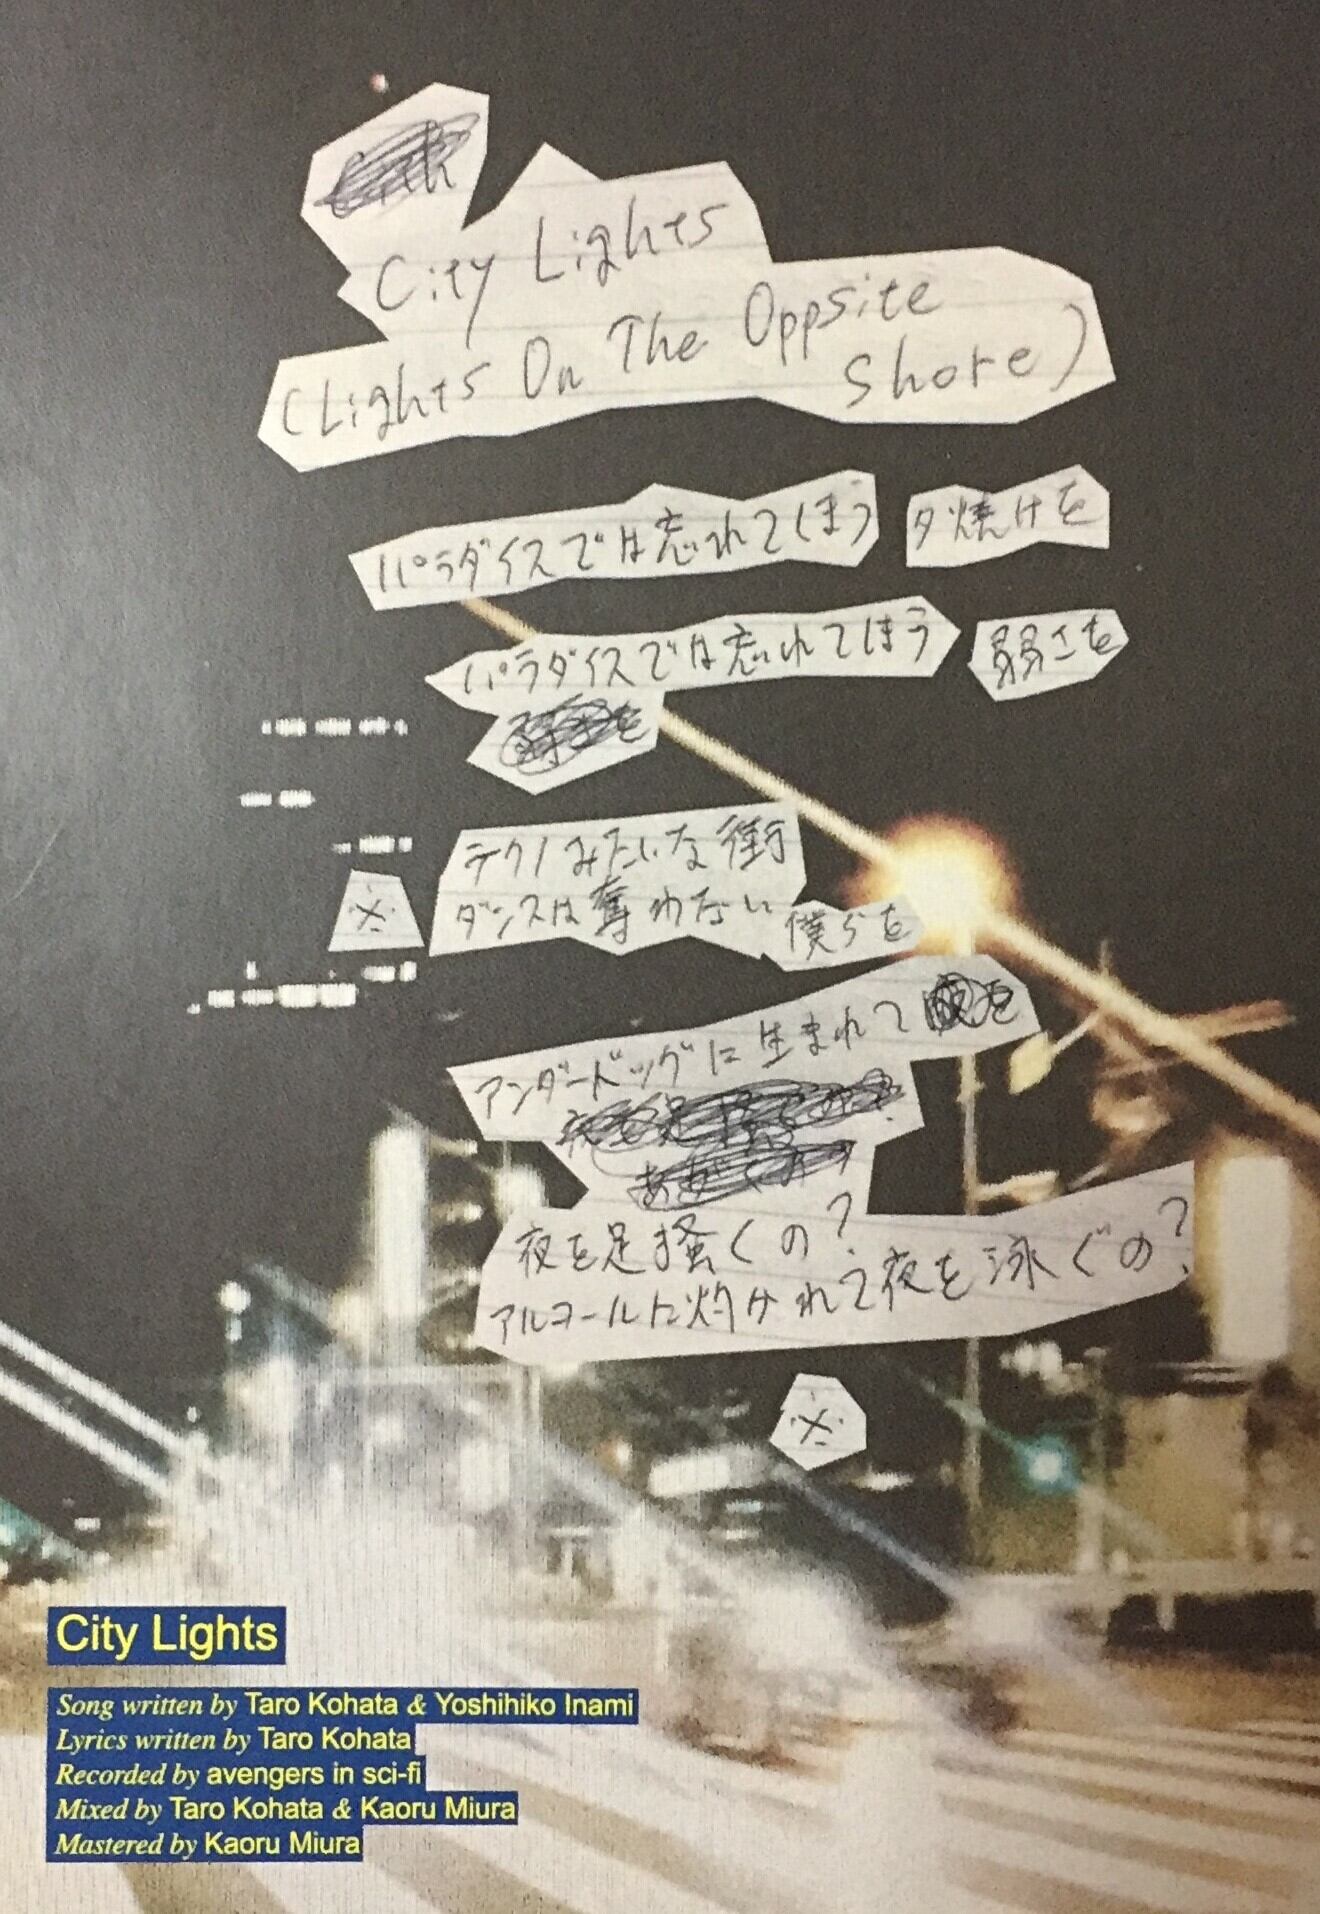 City Lights
(Lights On The Oppsite
Shore)
パラダイスでは忘れてしまう 夕焼けを
パラダイスでは忘れてしまう 弱さを
テクノみたいな街
※ ダンスは奪わない 僕らを
アンダードッグに生まれて
夜を足掻くの?
アルコールに灼かれて夜を泳ぐの?
※
City Lights
Song written by Taro Kohata & Yoshihiko Inami
Lyrics written by Taro Kohata
Recorded by avengers in sci-fi
Mixed by Taro Kohata & Kaoru Miura
Mastered by Kaoru Miura